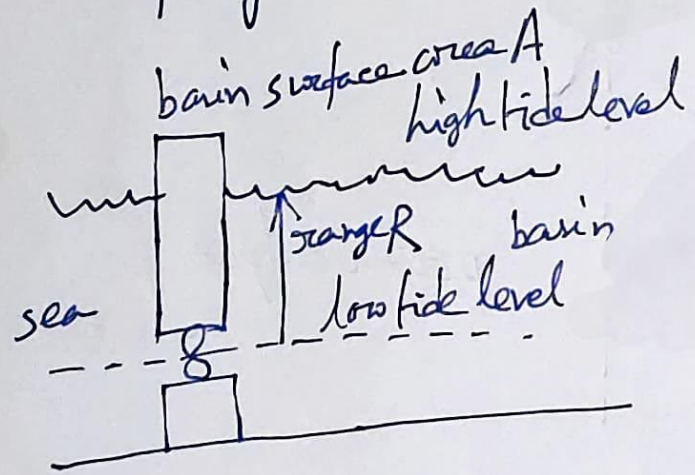 basin surface area A
high tide level
range R
basin
sea
low tide level